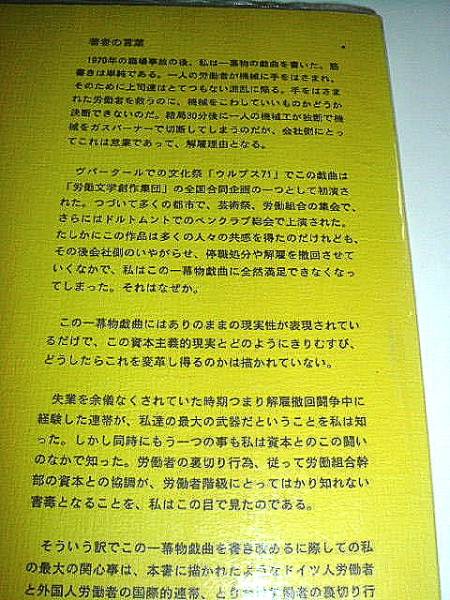 著者の言葉
1970年の職場事故の後、私は一幕物の戯曲を書いた。筋
書きは単純である。一人の労働者が機械に手をはさまれ、
そのために上司達はとてつもない混乱に陥る。手をはさま
れた労働者を救うのに、機械をこわしていいものかどうか
決断できないのだ。結局30分後に一人の機械工が独断で機
械をガスバーナーで切断してしまうのだが、会社側にとっ
てこれは怠業であって、解雇理由となる。
ヴパータールでの文化祭「ウルプス71」でこの戯曲は
「労働文学創作集団」の全国合同企画の一つとして初演さ
れた。つづいて多くの都市で、芸術祭、労働組合の集会で、
さらにはドルトムントでのペンクラブ総会で上演された。
たしかにこの作品は多くの人々の共感を得たのだけれども、
その後会社側のいやがらせ、停職処分や解雇を撤回させて
いくなかで、私はこの一幕物戯曲に全然満足できなくなっ
てしまった。それはなぜか。
この一幕物戯曲にはありのままの現実性が表現されてい
るだけで、この資本主義的現実とどのようにきりむすび、
どうしたらこれを変革し得るのかは描かれていない。
失業を余儀なくされていた時期つまり解雇撤回闘争中に
経験した連帯が、私達の最大の武器だということを私は知
った。しかし同時にもう一つの事も私は資本とのこの闘い
のなかで知った。労働者の裏切り行為、従って労働組合幹
部の資本との協調が、労働者階級にとってはかり知れない
害毒となることを、私はこの目で見たのである。
そういう訳でこの一幕物戯曲を書き改めるに際しての私
の最大の関心事は、本書に描かれたようなドイツ人労働者
と外国人労働者の国際的連帯、とりわけ労働者の裏切り行